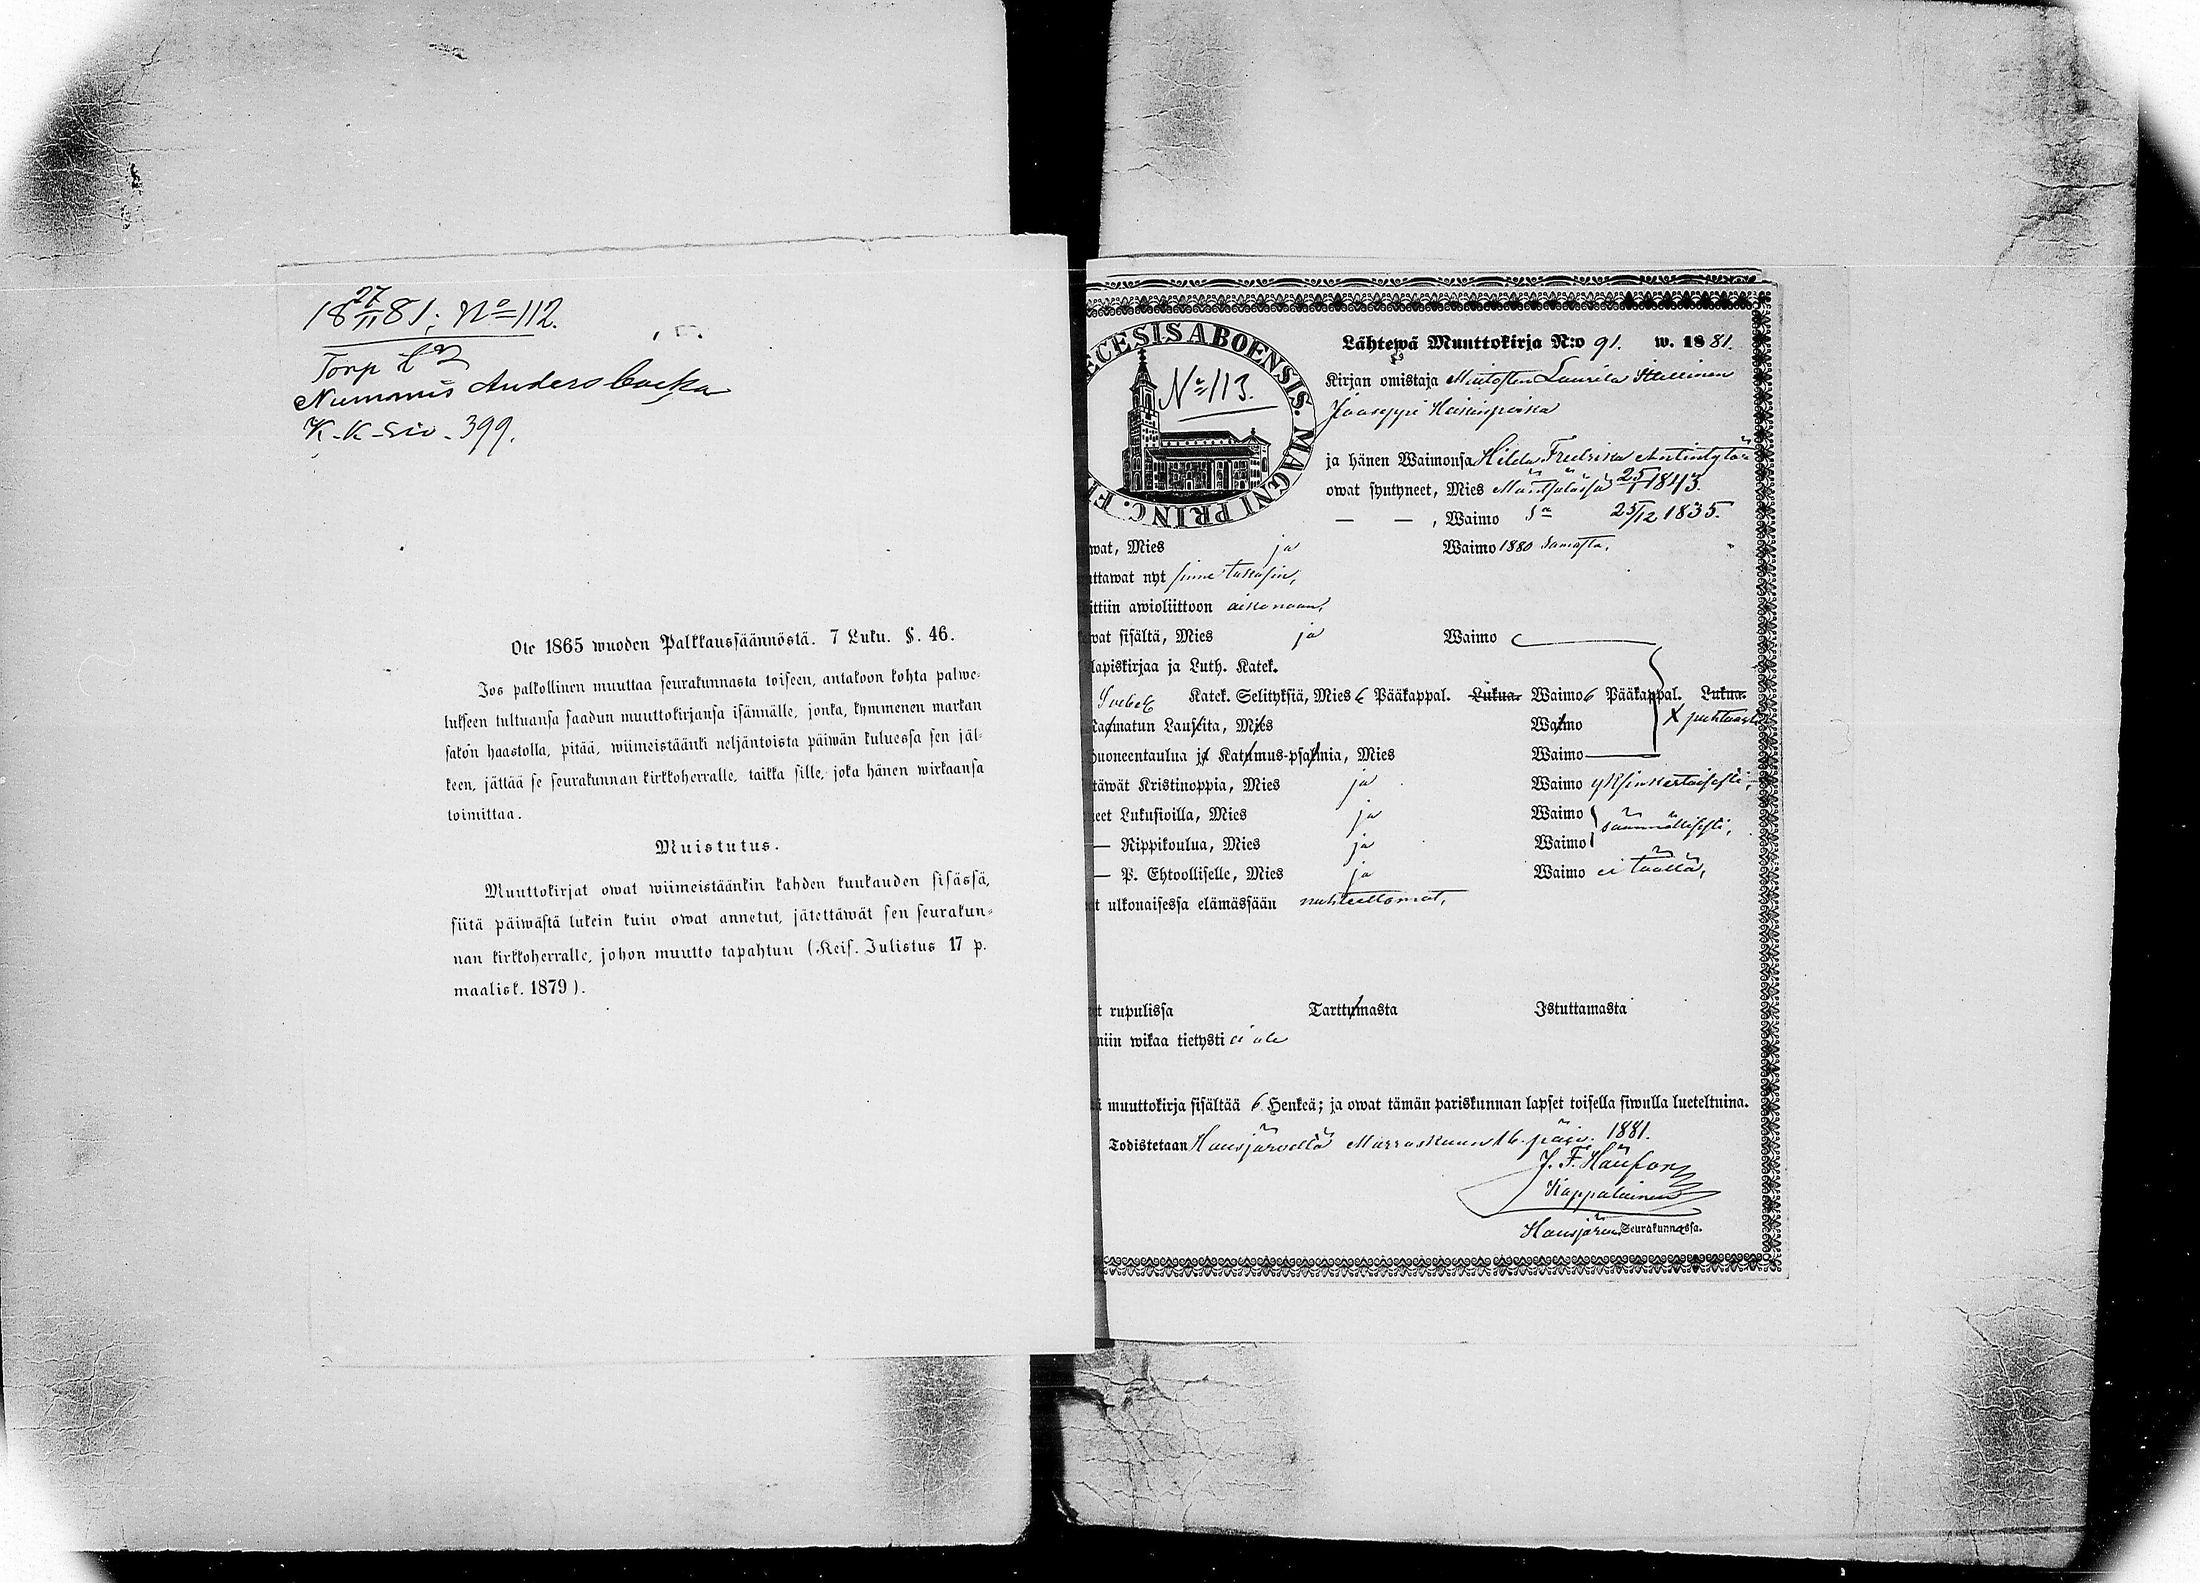 18 27/11 81; No 112.
Torp
Nummis Andersbacka
K-K-Siv. 399.
Ote 1865 wuoden Palkkaussäännöstä. 7 Luku. §. 46.
Jos palkollinen muuttaa seurakunnasta toiseen, antakoon kohta palwe-
lukseen tultuansa saadun muuttokirjansa isännälle, jonka, kymmenen markan
sakon haastolla, pitää, wiimeistäänki neljäntoista päiwän kuluessa sen jäl-
keen, jättää se seurakunnan kirkkoherralle, taikka sille, joka hänen wirkaansa
toimittaa.
Muistutus.
Muuttokirjat owat wiimeistäänkin kahden kuukauden sisässä,
siitä päiwästä lukein kuin owat annetut, jätettäwät sen seurakun-
nan kirkkoherralle, johon muutto tapahtuu (Keis. Julistus 17 p.
maalisk. 1879).
ECESIS ABOENSIS. MAGNI PRINC. FI
No 113.
Lähtewä Muuttokirja N:o 91. w. 1881.
Kirjan omistaja Laurila
Jooseppi Heikinpoika
ja hänen Waimonsa Hilda Fredrika Antintytär
owat syntyneet, Mies Mäntsälässä 25/1 1843.
— — , Waimo Sn 25/12 1835.
wat, Mies ja Waimo 1880 Samasta,
uttawat nyt sinne takasin,
ittiin awioliittoon aikanaan,
wat sisältä, Mies ja Waimo
lapiskirjaa ja Luth. Katek.
Svebel. Katek. Selityksiä, Mies 6 Pääkappal. Lukua. Waimo 6 Pääkappal. Lukua.
Raamatun Lauseita, Mies Waimo X puhtaasti
huoneentaulua ja Katumus-psalmia, Mies Waimo
täwät Kristinoppia, Mies ja Waimo yksinkertaisesti;
eet Lukusioilla, Mies ja Waimo säännöllisesti,
— Rippikoulua, Mies ja Waimo
— P. Ehtoolliselle, Mies ja Waimo ei täällä,
t ulkonaisessa elämässään nuhteettomat,
t rupulissa Tarttumasta Istuttamasta
niin wikaa tietysti ei ole
ä muuttokirja sisältää 6 Henkeä; ja owat tämän pariskunnan lapset toisella siwulla lueteltuina.
Todistetaan Hausjärwellä Marraskuun 16 päiw. 1881.
J. F.
Kappalainen
Hausjärwen Seurakunnassa.